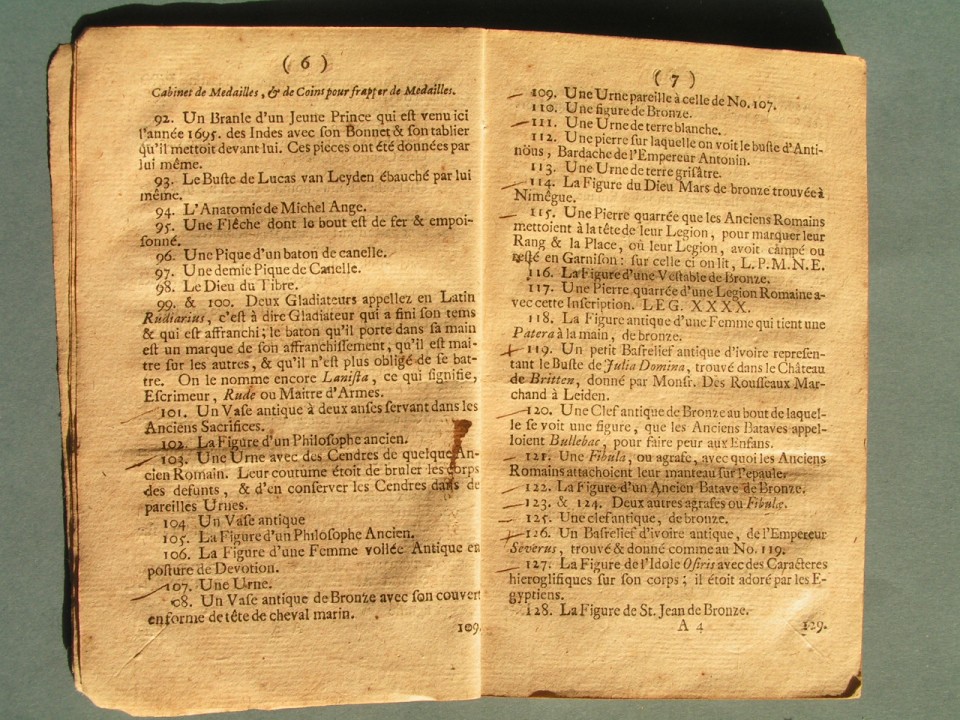 ( 6 )
Cabinet de Medailles, & de Coins pour frapper de Medailles.
92. Un Branle d'un Jeune Prince qui est venu ici
l'année 1695. des Indes avec son Bonnet & son tablier
qu'il mettoit devant lui. Ces pieces ont été données par
lui même.
93. Le Buste de Lucas van Leyden ébauché par lui
même.
94. L'Anatomie de Michel Ange.
95. Une Flêche dont le bout est de fer & empoi-
sonné.
96. Une Pique d'un baton de canelle.
97. Une demie Pique de Canelle.
98. Le Dieu du Tibre.
99. & 100. Deux Gladiateurs appellez en Latin
Rudiarius, c'est à dire Gladiateur qui a fini son tems
& qui est affranchi; le baton qu'il porte dans sa main
est un marque de son affranchissement, qu'il est mai-
tre sur les autres, & qu'il n'est plus obligé de se bat-
tre. On le nomme encore Lanista, ce qui signifie,
Escrimeur, Rude ou Maitre d'Armes.
101. Un Vase antique à deux anses servant dans les
Anciens Sacrifices.
102. La Figure d'un Philosophe ancien.
103. Une Urne avec des Cendres de quelque An-
cien Romain. Leur coutume étoit de bruler les corps
des defunts, & d'en conserver les Cendres dans de
pareilles Urnes.
104. Un Vase antique
105. La Figure d'un Philosophe Ancien.
106. La Figure d'une Femme vollée Antique en
posture de Devotion.
107. Une Urne.
08. Un Vase antique de Bronze avec son couvert
en forme de tête de cheval marin.
109.
( 7 )
109. Une Urne pareille à celle de No. 107.
110. Une figure de Bronze.
111. Une Urne de terre blanche.
112. Une pierre sur laquelle on voit le buste d'Anti-
nöus, Bardache de l'Empereur Antonin.
113. Une Urne de terre grisâtre.
114. La Figure du Dieu Mars de bronze trouvée à
Nimégue.
115. Une Pierre quarrée que les Anciens Romains
mettoient à la tête de leur Legion, pour marquer leur
Rang & la Place, où leur Legion, avoit campé ou
resté en Garnison: sur celle ci on lit, L. P. M. N. E.
116. La Figure d'une Vestable de Bronze.
117. Une Pierre quarrée d'une Legion Romaine a-
vec cette Inscription. LEG. XXXX.
118. La Figure antique d'une Femme qui tient une
Patera à la main, de bronze.
119. Un petit Basrelief antique d'ivoire represen-
tant le Buste de Julia Domina, trouvé dans le Château
de Britten, donné par Monsr. Des Rousseaux Mar-
chand à Leiden.
120. Une Clef antique de Bronze au bout de laquel-
le se voit une figure, que les Anciens Bataves appel-
loient Bullebac, pour faire peur aux Enfans.
121. Une Fibula, ou agrafe, avec quoi les Anciens
Romains attachoient leur manteau sur l'epaule.
122. La Figure d'un Ancien Batave de Bronze.
123. & 124. Deux autres agrafes ou Fibulæ.
125. Une clef antique, de bronze.
126. Un Basrelief d'ivoire antique, de l'Empereur
Severus, trouvé & donné comme au No. 119.
127. La Figure de l'Idole Osiris avec des Caracteres
hieroglifiques sur son corps; il étoit adoré par les E-
gyptiens.
128. La Figure de St. Jean de Bronze.
A 4
129.